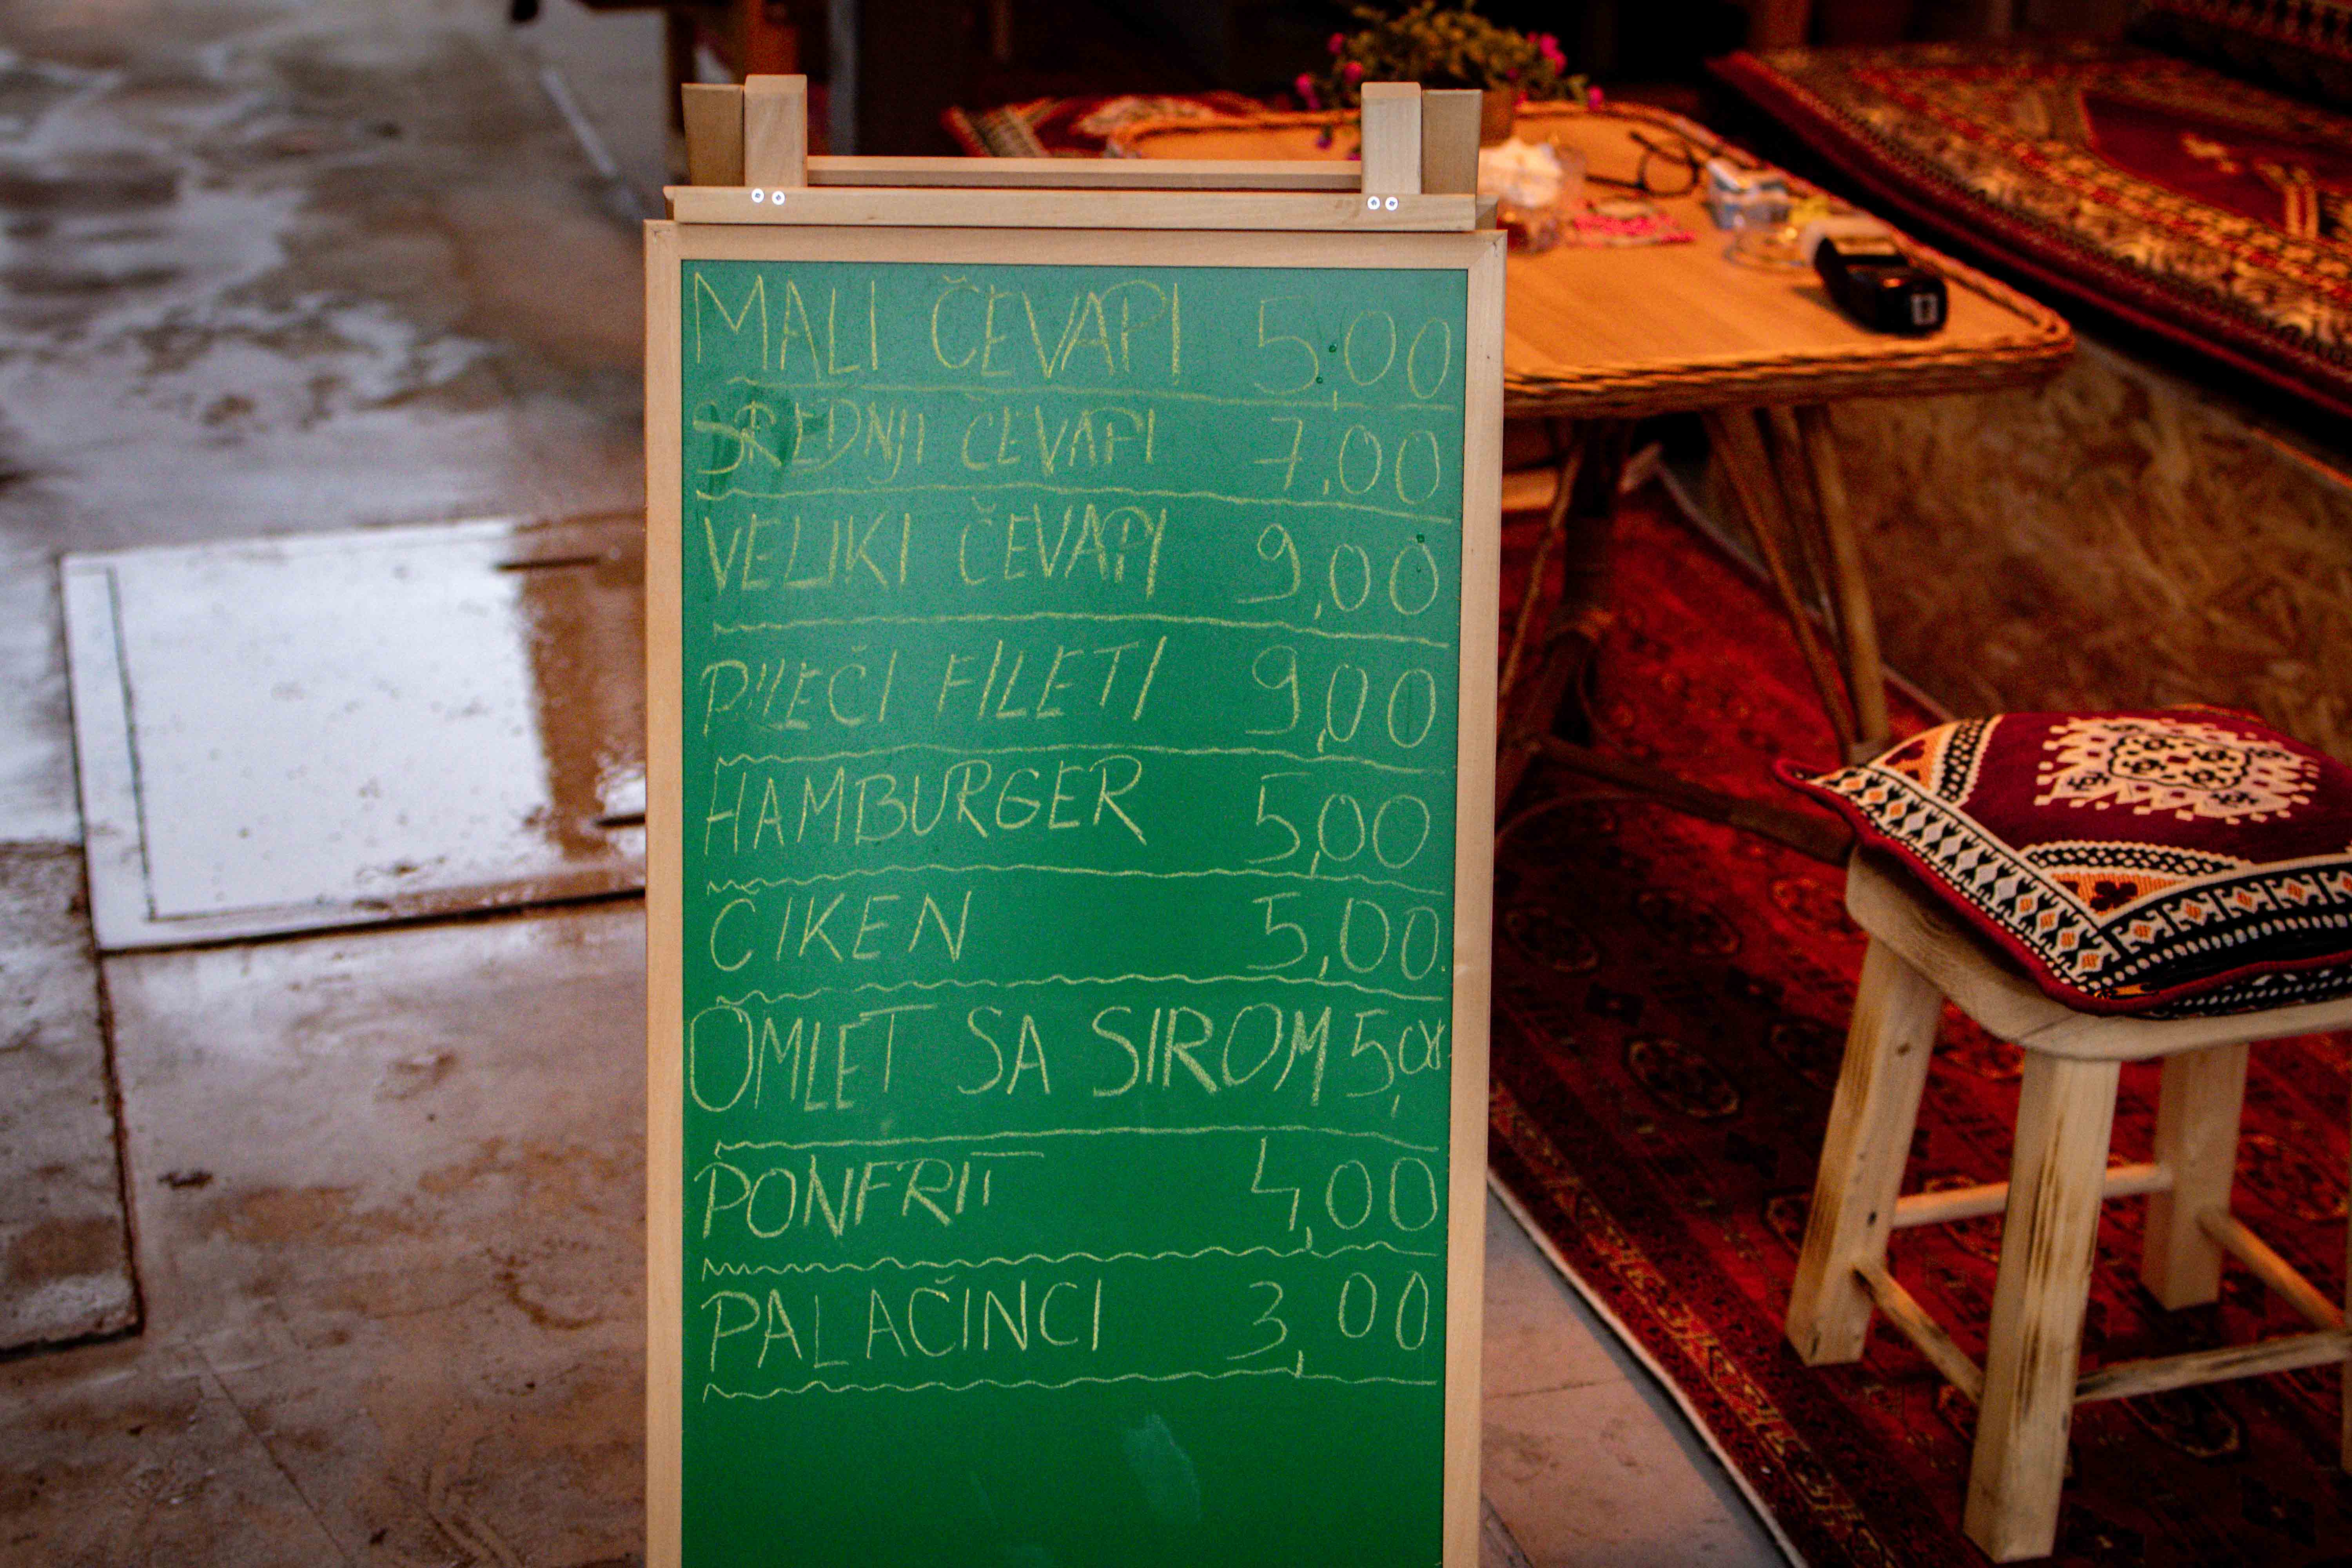 MALI ČEVAPI 5,00
SREDNJI ČEVAPI 7,00
VELIKI ČEVAPI 9,00
PILEĆI FILETI 9,00
HAMBURGER 5,00
ČIKEN 5,00
OMLET SA SIROM 5,00
PONFRIT 4,00
PALAČINCI 3,00